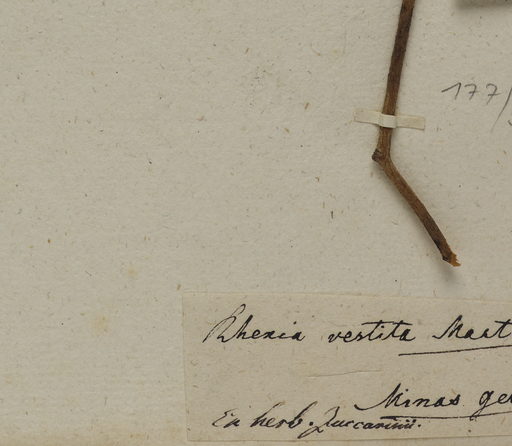 177/
Rhexia vestita Mart
Minas ger
Ex herb. Zuccarinii.